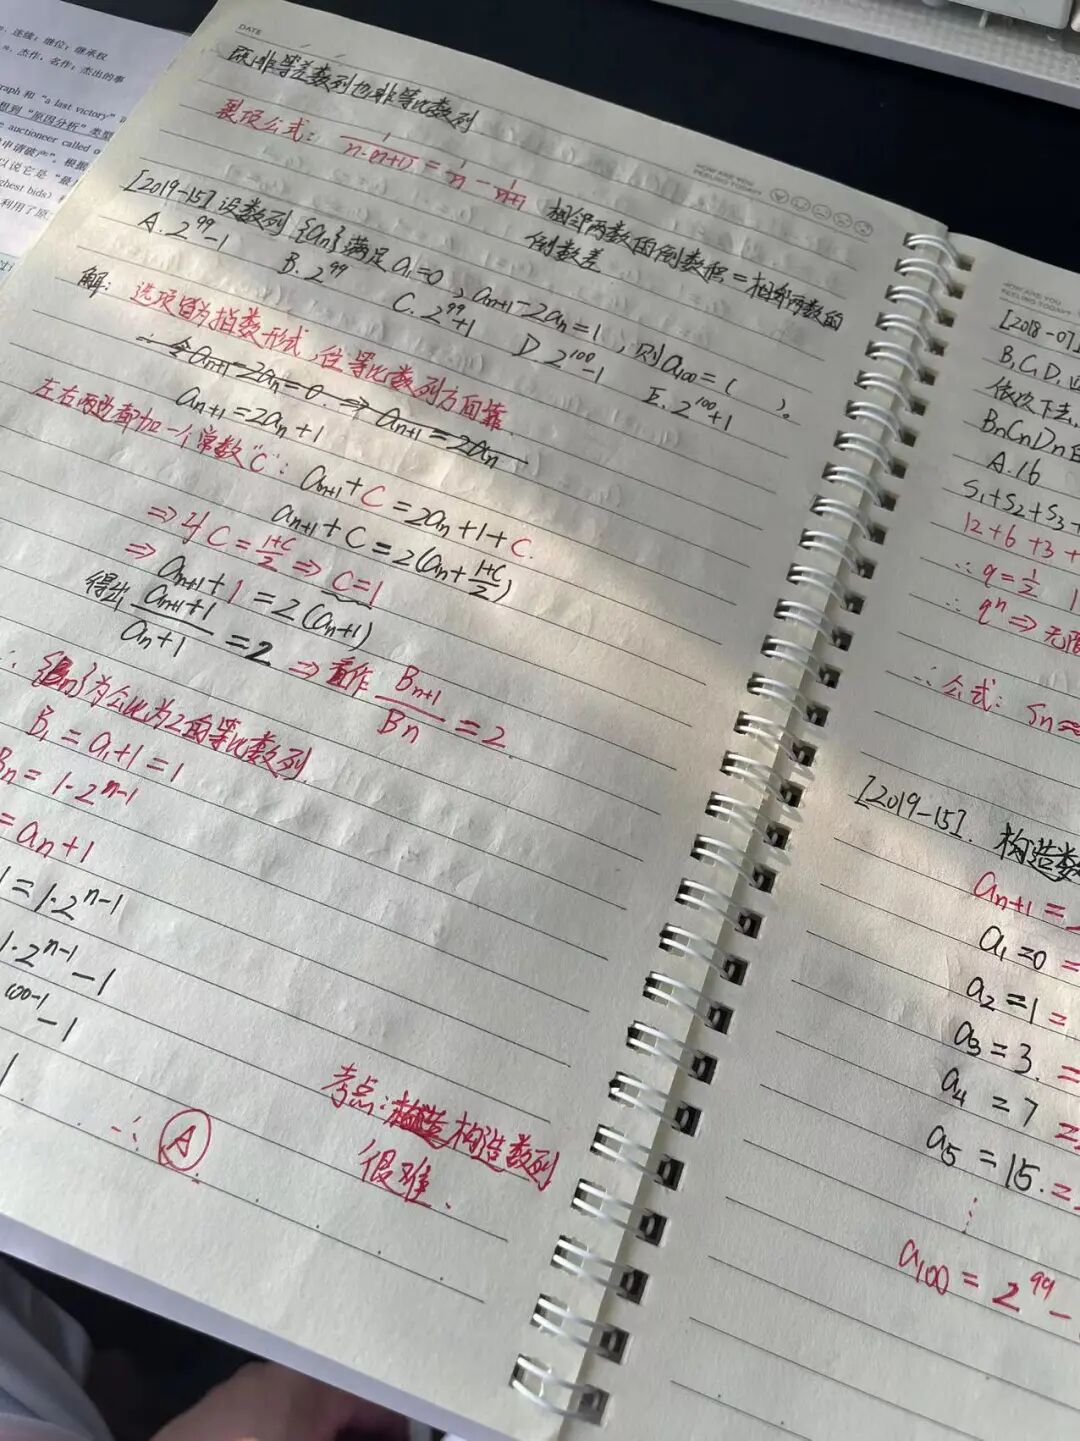 ;连续;继位;继承权
n.杰作,名作;杰出的事
graph 和 "a last victory"
想到"原因分析"类型
e auctioneer called o
申请破产",根据
以说它是"最
ghest bids)
利用了原
DATE
既非等差数列也非等比数列
裂项公式: 1/n·(n+1) = 1/n - 1/n+1
相邻两数的倒数积=相邻两数的
倒数差
HOW ARE YOU
FEELING TODAY?
[2019-15] 设数列{an}满足a₁=0, an+1-2an=1, 则a100=( )。
A. 2^99-1 B. 2^99 C. 2^99+1 D. 2^100-1 E. 2^100+1
解: 选项皆为指数形式,往等比数列方向靠.
∴令an+1-2an=0 ⇒ an+1=2an
an+1=2an+1
左右两边都加一个常数"C": an+1+C=2an+1+C.
an+1+C=2(an+1+C/2)
⇒ C=1+C/2 ⇒ C=1
⇒ an+1+1=2(an+1)
得出 an+1+1/an+1=2 ⇒ 看作 Bn+1/Bn=2
∴ {Bn}为公比为2的等比数列
B₁=a₁+1=1
Bn=1·2^n-1
=an+1
1=1·2^n-1
1·2^n-1-1
100-1-1
∴ A
考点: 构造数列
很难.
HOW ARE YOU
FEELING TODAY?
[2018-07]
B,C,D,
依次下去,
BnCnDn
A.16
S₁+S₂+S₃+
12+6+3+
∴q=1/2
∴q^n⇒无限
∴公式: Sn≈
[2019-15]. 构造数
an+1=
a₁=0=
a₂=1=
a₃=3.=
a₄=7
a₅=15.=
⋮
a100=2^99-